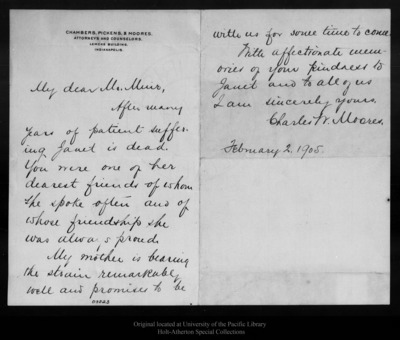 CHAMBERS, PICKENS, & MOORES,
ATTORNEYS AND COUNSELORS,
LEMCKE BUILDING,
INDIANAPOLIS.
My dear Mr. Muir,
After many
years of patient suffer-
ing Janet is dead.
You were one of her
dearest friends of whom
she spoke often and of
whose friendship she
was always proud.
My mother is bearing
the strain remarkably
well and promises to be
with us for some time to come.
With affectionate mem-
ories of your kindness to
Janet and to all of us
I am sincerely yours,
Charles W. Moores.
February 2, 1905.
Original located at University of the Pacific Library
Holt-Atherton Special Collections